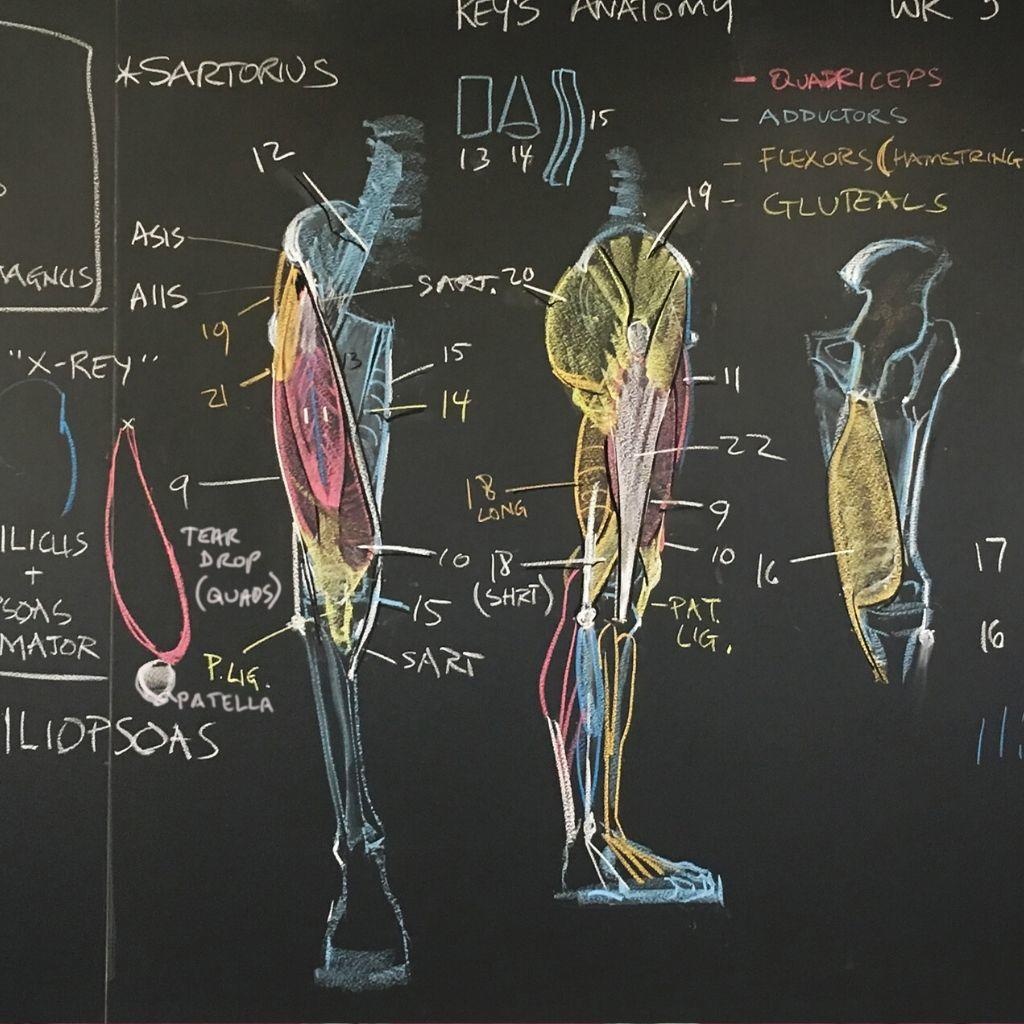 KEY'S ANATOMY
WK 5
*SARTORIUS
- QUADRICEPS
- ADDUCTORS
- FLEXORS (HAMSTRING
- GLUTEALS
13 14 15
12
19
ASIS
AIIS
SART. 20
MAGNUS
19
21
13
15
14
11
11
"X-REY"
22
9
18
LONG
9
10
10
TEAR
DROP
(QUADS)
18
(SHRT)
16
17
16
ILICUS
+
PSOAS
MAJOR
15
PAT.
LIG.
P. LIG.
SART
PATELLA
ILIOPSOAS